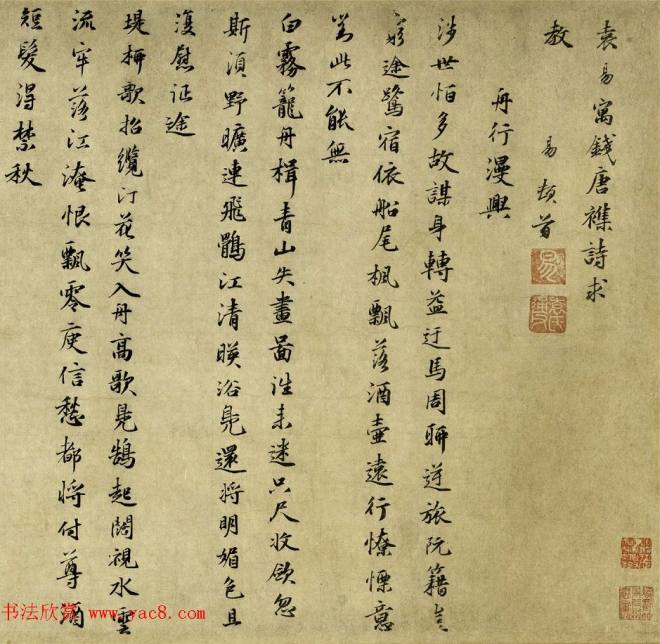 袁易寓錢唐襍詩求
教　易頓首
舟行漫興
涉世怕多故謀身轉益迂馬周聊逆旅阮籍豈
窮途鷺宿依船尾楓飄落酒壺遠行憭慄意
對此不能無
白霧籠舟楫青山失畫啚往来迷只尺收歛忽
斯須野曠連飛鶻江清暎浴鳧還將明媚色且
復慰征途
堤柳歌招纜汀花笑入舟高歌見鵠起闊視水雲
流牢落江淹恨飄零庾信愁都將付尊酒
短髮得禁秋
书法欣赏 www.yac8.com